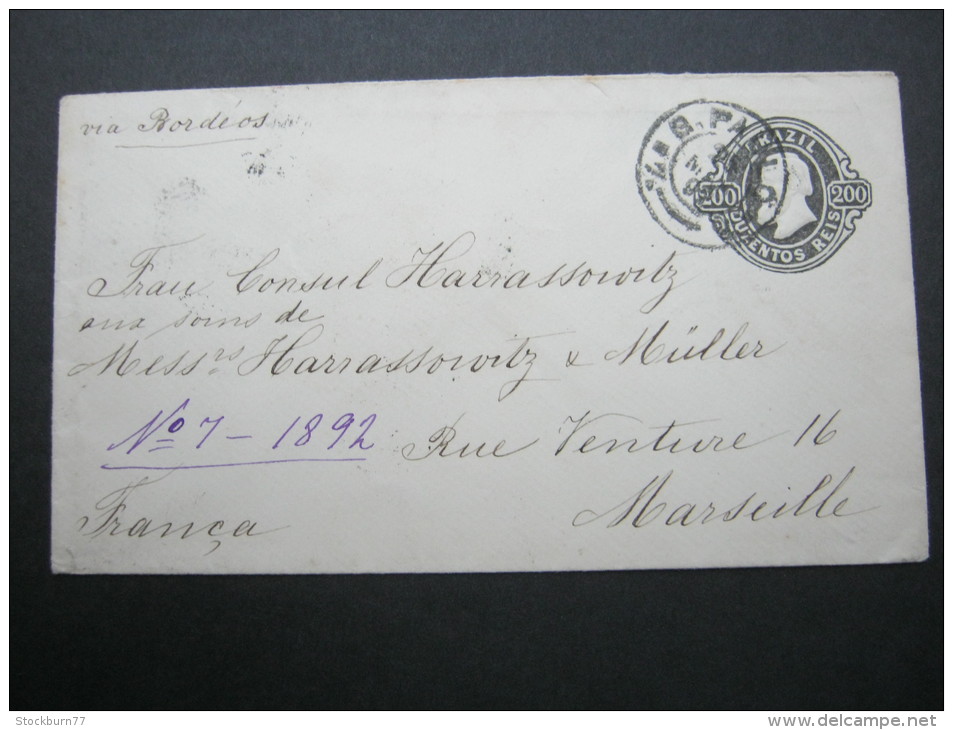 via Bordéos
BRAZIL
200 200
DUZENTOS REIS
Frau Consul Harrassowitz
aux soins de
Messrs Harrassowitz & Müller
No 7 - 1892 Rue Venture 16
Marseille
França
Stockburn77
www.delcampe.net